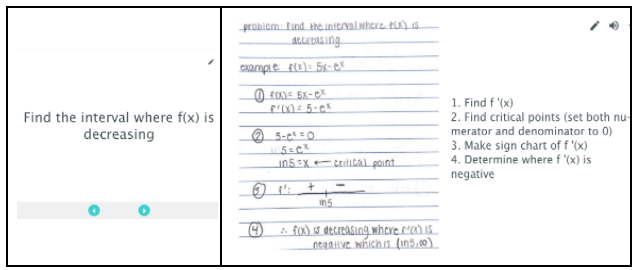 Find the interval where f(x) is
decreasing
problem: find the interval where f(x) is
decreasing
example: f(x) = 5x-eˣ
① f(x) = 5x-eˣ
f'(x) = 5-eˣ
② 5-eˣ = 0
5 = eˣ
ln5 = x ← critical point
③ f': + -
ln5
④ ∴ f(x) is decreasing where f'(x) is
negative which is (ln5,∞)
1. Find f '(x)
2. Find critical points (set both nu-
merator and denominator to 0)
3. Make sign chart of f '(x)
4. Determine where f '(x) is
negative